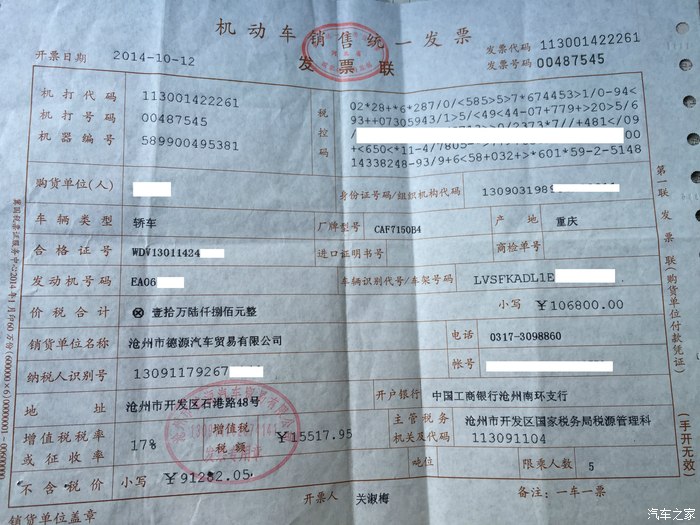 机动车销售统一发票
发票联
开票日期 2014-10-12
发票代码 113001422261
发票号码 00487545
机打代码 113001422261
机打号码 00487545
机器编号 589900495381
税控码
02*28+*6*287/0/<585>5>7*674453>1/0-94<
93++07305943/1>5/<49<44-07+779+>20>5/6
+<650<*11-4/7805-
14338248-93/9+6<58+032+>*601*59-2-5148
购货单位(人)
身份证号码/组织机构代码 1309031989
车辆类型 轿车
厂牌型号 CAF7150B4
产地 重庆
合格证号 WDV13011424
进口证明书号
商检单号
发动机号码 EA06
车辆识别代号/车架号码 LVSFKADL1E
价税合计 ⊗ 壹拾万陆仟捌佰元整
小写 ¥106800.00
销货单位名称 沧州市德源汽车贸易有限公司
电话 0317-3098860
纳税人识别号 13091179267
帐号
地址 沧州市开发区石港路48号
开户银行 中国工商银行沧州南环支行
增值税税率或征收率 17%
增值税税额 ¥15517.95
主管税务机关及代码 沧州市开发区国家税务局税源管理科
113091104
不含税价 小写 ¥91282.05
吨位
限乘人数 5
销货单位盖章
开票人 关淑梅
备注：一车一票
第一联 发票联(购货单位付款凭证)
(手开无效)
汽车之家